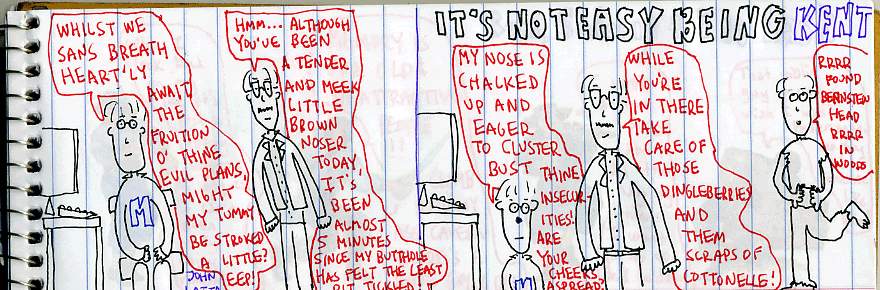 IT'S NOT EASY BEING KENT
WHILST WE
SANS BREATH
HEART'LY
AWAIT
THE
FRUITION
O' THINE
EVIL PLANS,
MIGHT
MY TUMMY
BE STROKED
A LITTLE?
EEP!
M
JOHN
HMM... ALTHOUGH
YOU'VE BEEN
A TENDER
AND MEEK
LITTLE
BROWN
NOSER
TODAY,
IT'S
BEEN
ALMOST
5 MINUTES
SINCE MY BUTTHOLE
HAS FELT THE LEAST
BIT TICKLED!
MY NOSE IS
CHALKED
UP AND
EAGER
TO CLUSTER
BUST
THINE
INSECUR-
ITIES!
ARE
YOUR
CHEEKS
ASPREAD?
M
WHILE
YOU'RE
IN THERE
TAKE
CARE OF
THOSE
DINGLEBERRIES
AND
THEM
SCRAPS OF
COTTONELLE!
RRRR
FOUND
BERNSTEIN
HEAD
RRRR
IN
WOODS